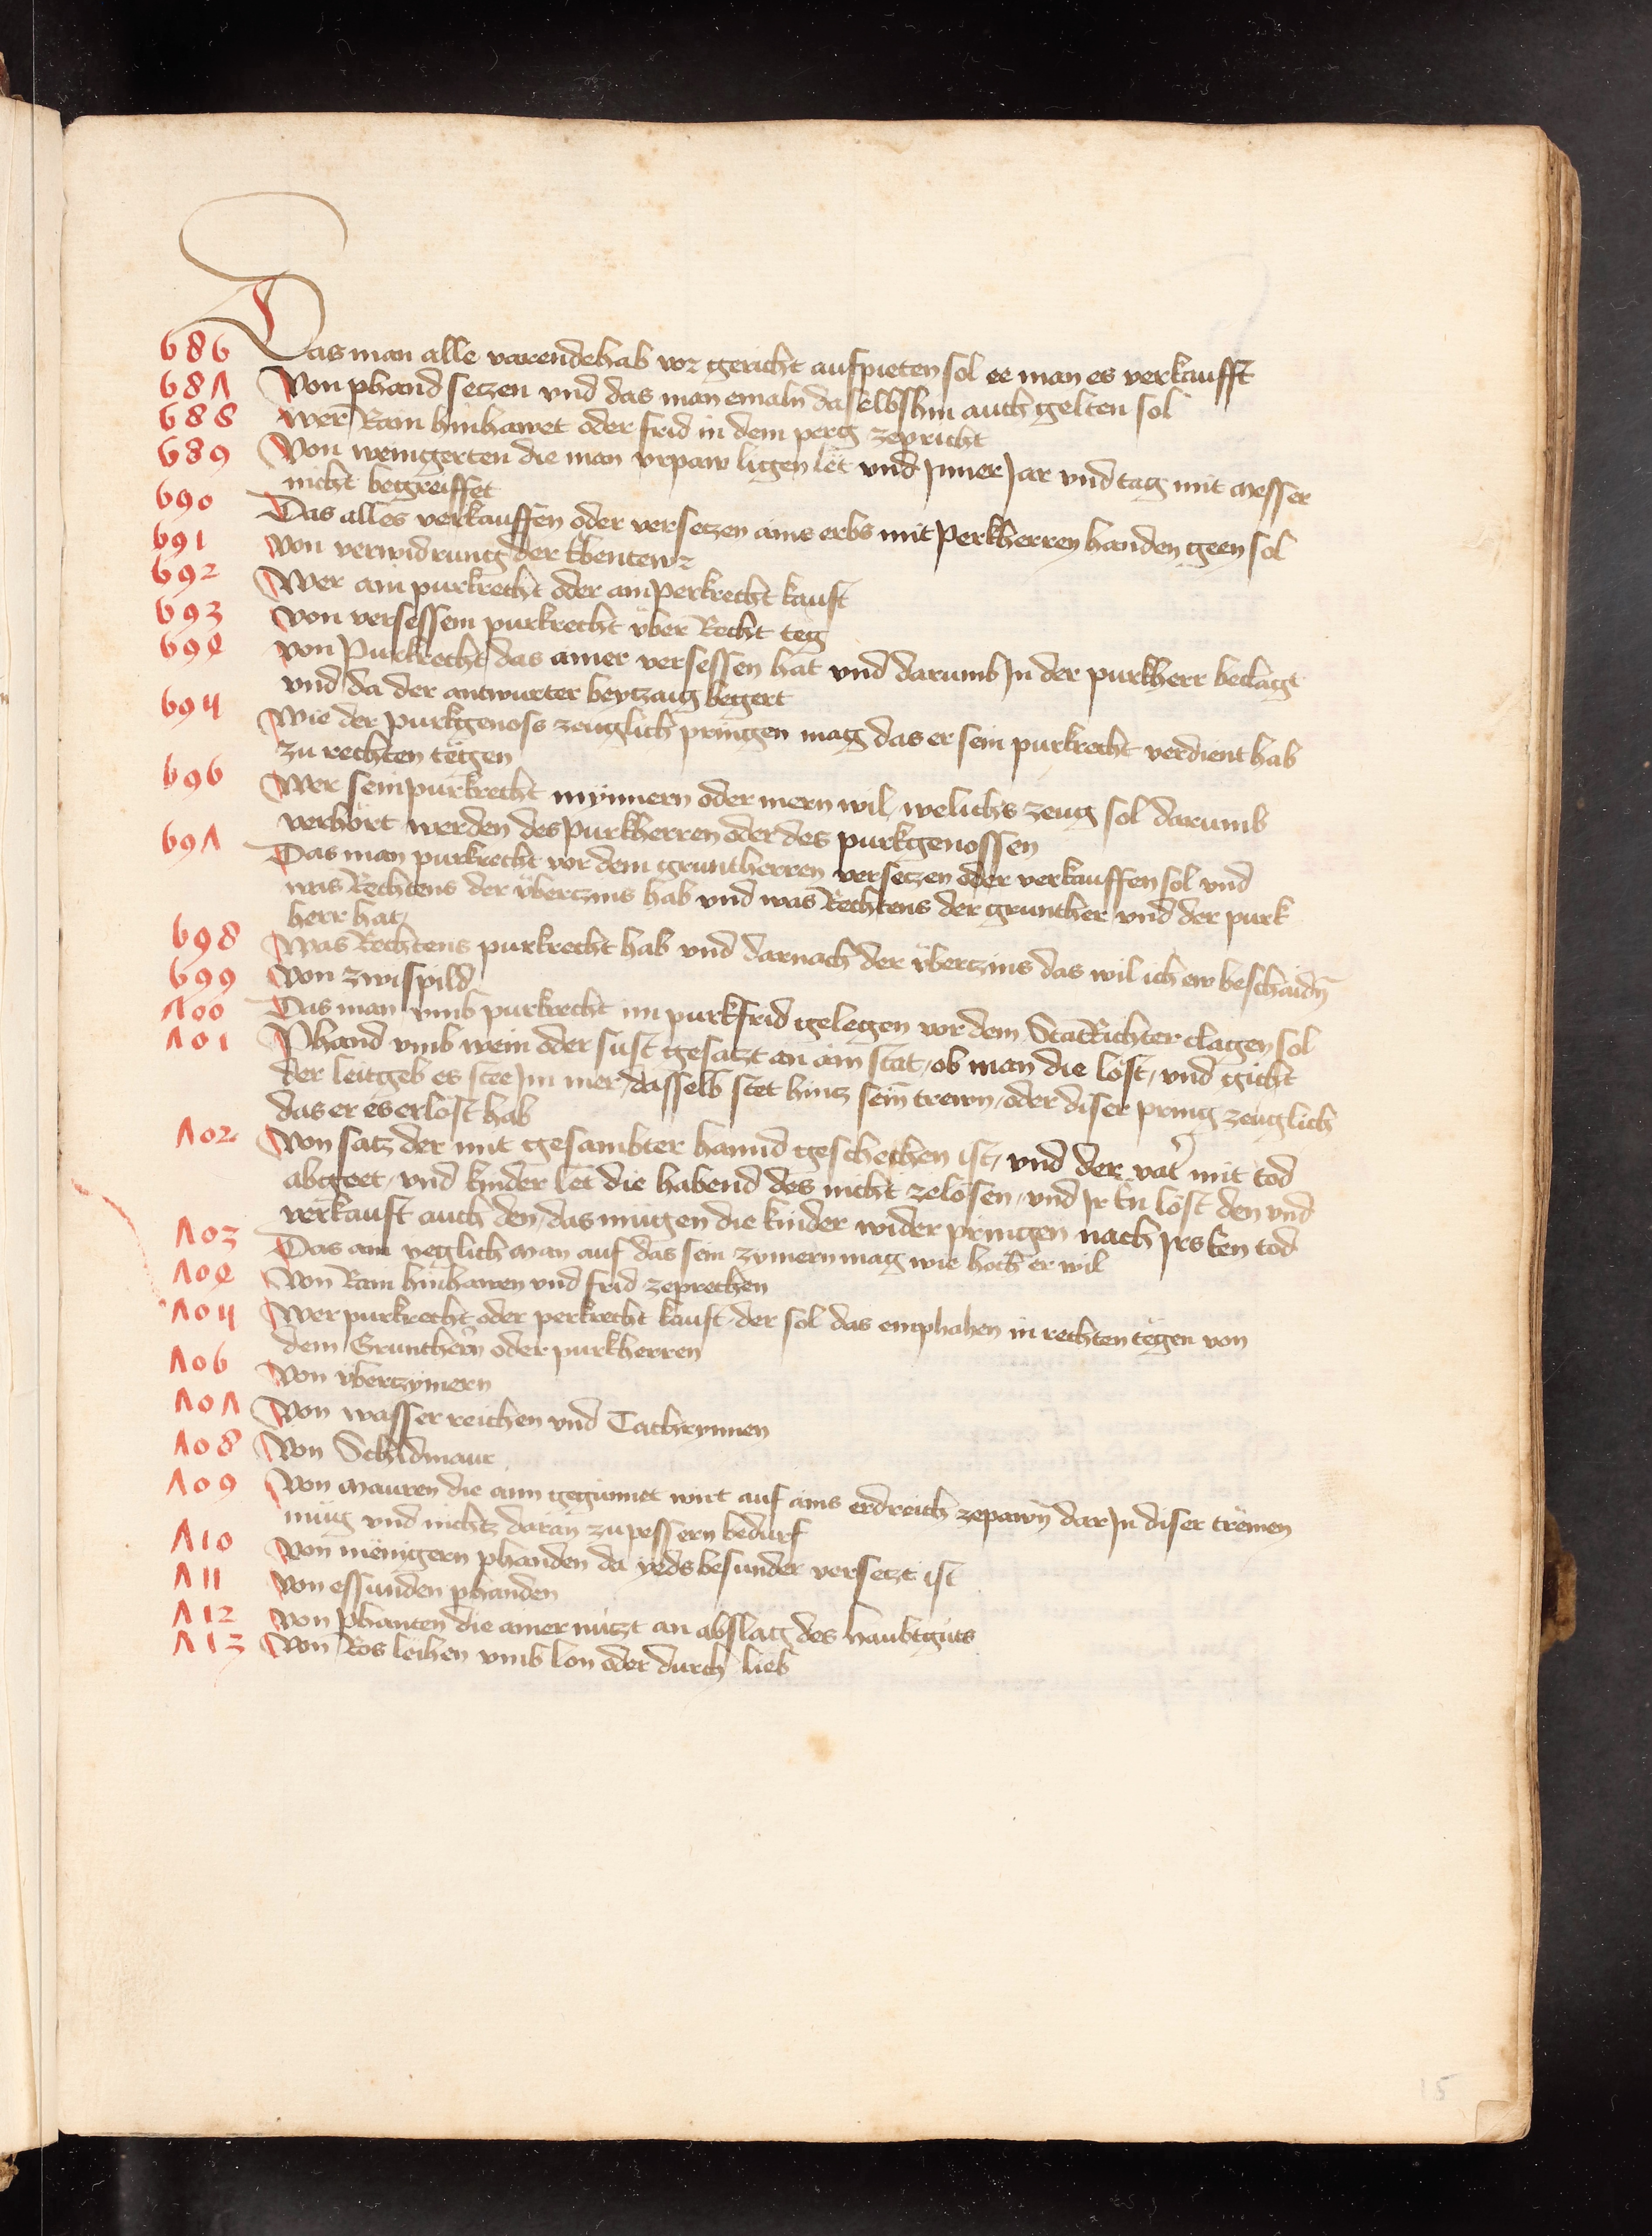 686 Das man alle varendehab vor gericht aufpieten sol ee man es verkaufft
687 Von phand setzen vnd das man emaln daselbshin auch gelten sol
688 wer Rain hinhawet oder frid in dem perg zepricht
689 Von weingerten die man vrpaw ligen let vnd Inner Jar vnd tag mit messer
nicht begreiffet
690 Das alles verkauffen oder versetzen ains erbs mit Perkherren handen geen sol
691 von verwidrung der Ebentewr
692 Wer ain purkrecht oder ain Perkrecht kauft
693 von versessem purkrecht vber Recht teg
694 von Purkrecht das ainer versessen hat vnd darumb In der purkherr beclagt
vnd da der antwurter beytzaug begert
695 Wie der purkgenoss zeuglich pringen mag das er sein purkrecht verdient hab
zu rechten tëgen
696 Wer sein purkrecht mynnern oder mern wil welichs zeug sol darumb
verhört werden des purkherren oder des purkgenossen
697 Das man purkrecht vor dem gruntherren versetzen oder verkauffen sol vnd
was Rechtens der vberczins hab vnd was Rechtens der grunther vnd der purk
herr hat
698 Was Rechtens purkrecht hab vnd darnach der vberczins das wil ich ew beschaidn
699 Von zwispild
700 Das man vmb purkrecht im purkfrid gelegen vor dem StatRichter clagen sol
701 Phand vmb wein oder sust gesatzt an aim stat ob man die löst vnd gicht
der leitgeb es stee Im mer dasselb stet hincz sein trewn oder diser pring zeuglich
das er es erlöst hab
702 Von satz der mit gesambter hannd geschechen ist vnd der vat' mit tod
abgeet vnd kinder let die habend des nicht zelösen vnd Ir En löst den vnd
verkauft auch den das mügen die kinder wider pringen nach Irs Een tod
703 Das ain yeglich man auf das sein zymern mag wie hoch er wil
704 Von Rain hinhawen vnd frid zeprechen
705 Wer purkrecht oder perkrecht kauft der sol das emphahen in rechten tëgen von
dem Grunthern oder purkherren
706 Von vberczymern
707 Von wasser reichen vnd Tachrynnen
708 Von Schidmaur
709 Von mauren die aim gegunnet wirt auf ains erdreich zepawn dar In diser trëmen
müg vnd nichtz daran zu pessern bedurf
710 Von mënigern phanden da yeds besunder versetzt ist
711 von essunden phanden
712 von Phanten die ainer nuczt an abslag des haubtguts
713 Von Ros leihen vmb lon oder durch lieb
15